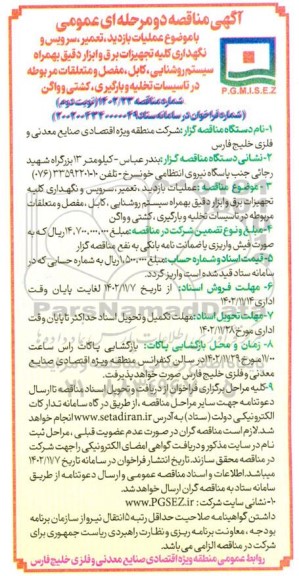 آگهی مناقصه دو مرحله ای عمومی
با موضوع عملیات بازدید، تعمیر، سرویس و
نگهداری کلیه تجهیزات برق و ابزار دقیق بهمراه
سیستم روشنایی، کابل، مفصل و متعلقات مربوطه
در تاسیسات تخلیه و بارگیری، کشتی و واگن
P.G.M.I.S.E.Z
شماره مناقصه ۱۴۰۲/۲۳ (نوبت دوم)
(شماره فراخوان در سامانه ستاد ۲۰۰۲۰۰۴۳۴۰۰۰۰۰۴۹)
۱-نام دستگاه مناقصه گزار: شرکت منطقه ویژه اقتصادی صنایع معدنی و
فلزی خلیج فارس
۲-نشانی دستگاه مناقصه گزار: بندرعباس - کیلومتر ۱۳ بزرگراه شهید
رجائی جنب پاسگاه نیروی انتظامی خونسرخ - تلفن ۳۳۵۹۲۲۰۱۰ (۰۷۶)
۳-موضوع مناقصه: عملیات بازدید، تعمیر، سرویس و نگهداری کلیه
تجهیزات برق و ابزار دقیق بهمراه سیستم روشنایی، کابل، مفصل و متعلقات
مربوطه در تاسیسات تخلیه و بارگیری، کشتی و واگن
۴-مبلغ و نوع تضمین شرکت در مناقصه: مبلغ ۱۴,۷۰۰,۰۰۰,۰۰۰ ریال که به
صورت فیش واریزی یا ضمانت نامه بانکی به نفع مناقصه گزار
۵-قیمت اسناد و شماره حساب: مبلغ ۱,۵۰۰,۰۰۰ ریال به شماره حسابی که در
سامانه ستاد قید شده است واریز گردد.
۶- مهلت فروش اسناد: از تاریخ ۱۴۰۲/۱۱/۷ لغایت پایان وقت
اداری ۱۴۰۲/۱۱/۱۴
۷-مهلت تحویل اسناد: مهلت تکمیل و تحویل اسناد حداکثر تا پایان وقت
اداری مورخ ۱۴۰۲/۱۱/۲۸
۸- زمان و محل بازگشایی پاکات: بازگشایی پاکات رأس ساعت
۱۰:۰۰ مورخ ۱۴۰۲/۱۱/۲۹ در سالن کنفرانس منطقه ویژه اقتصادی صنایع
معدنی و فلزی خلیج فارس صورت خواهد پذیرفت.
۹-کلیه مراحل برگزاری فراخوان از دریافت و تحویل اسناد مناقصه تا ارسال
دعوتنامه جهت سایر مراحل مناقصه، از طریق درگاه سامانه تدارکات
الکترونیکی دولت (ستاد) به آدرس www.setadiran.ir انجام خواهد
شد. لازم است مناقصه گران در صورت عدم عضویت قبلی، مراحل ثبت
نام در سایت مذکور و دریافت گواهی امضای الکترونیکی را جهت شرکت
در مناقصه محقق سازند. تاریخ انتشار فراخوان در سامانه تاریخ ۱۴۰۲/۱۱/۷
میباشد. اطلاعات و اسناد مناقصه عمومی و ارسال دعوتنامه از طریق
سامانه ستاد به مناقصه گران ارسال خواهد شد.
۱۰-نشانی سایت شرکت: www.PGSEZ.ir
داشتن گواهینامه صلاحیت حداقل رتبه ۵ انتقال نیرو از سازمان برنامه
بودجه، معاونت برنامه ریزی و نظارت راهبردی ریاست جمهوری برای
شرکت در مناقصه الزامی می باشد.
روابط عمومی منطقه ویژه اقتصادی صنایع معدنی و فلزی خلیج فارس